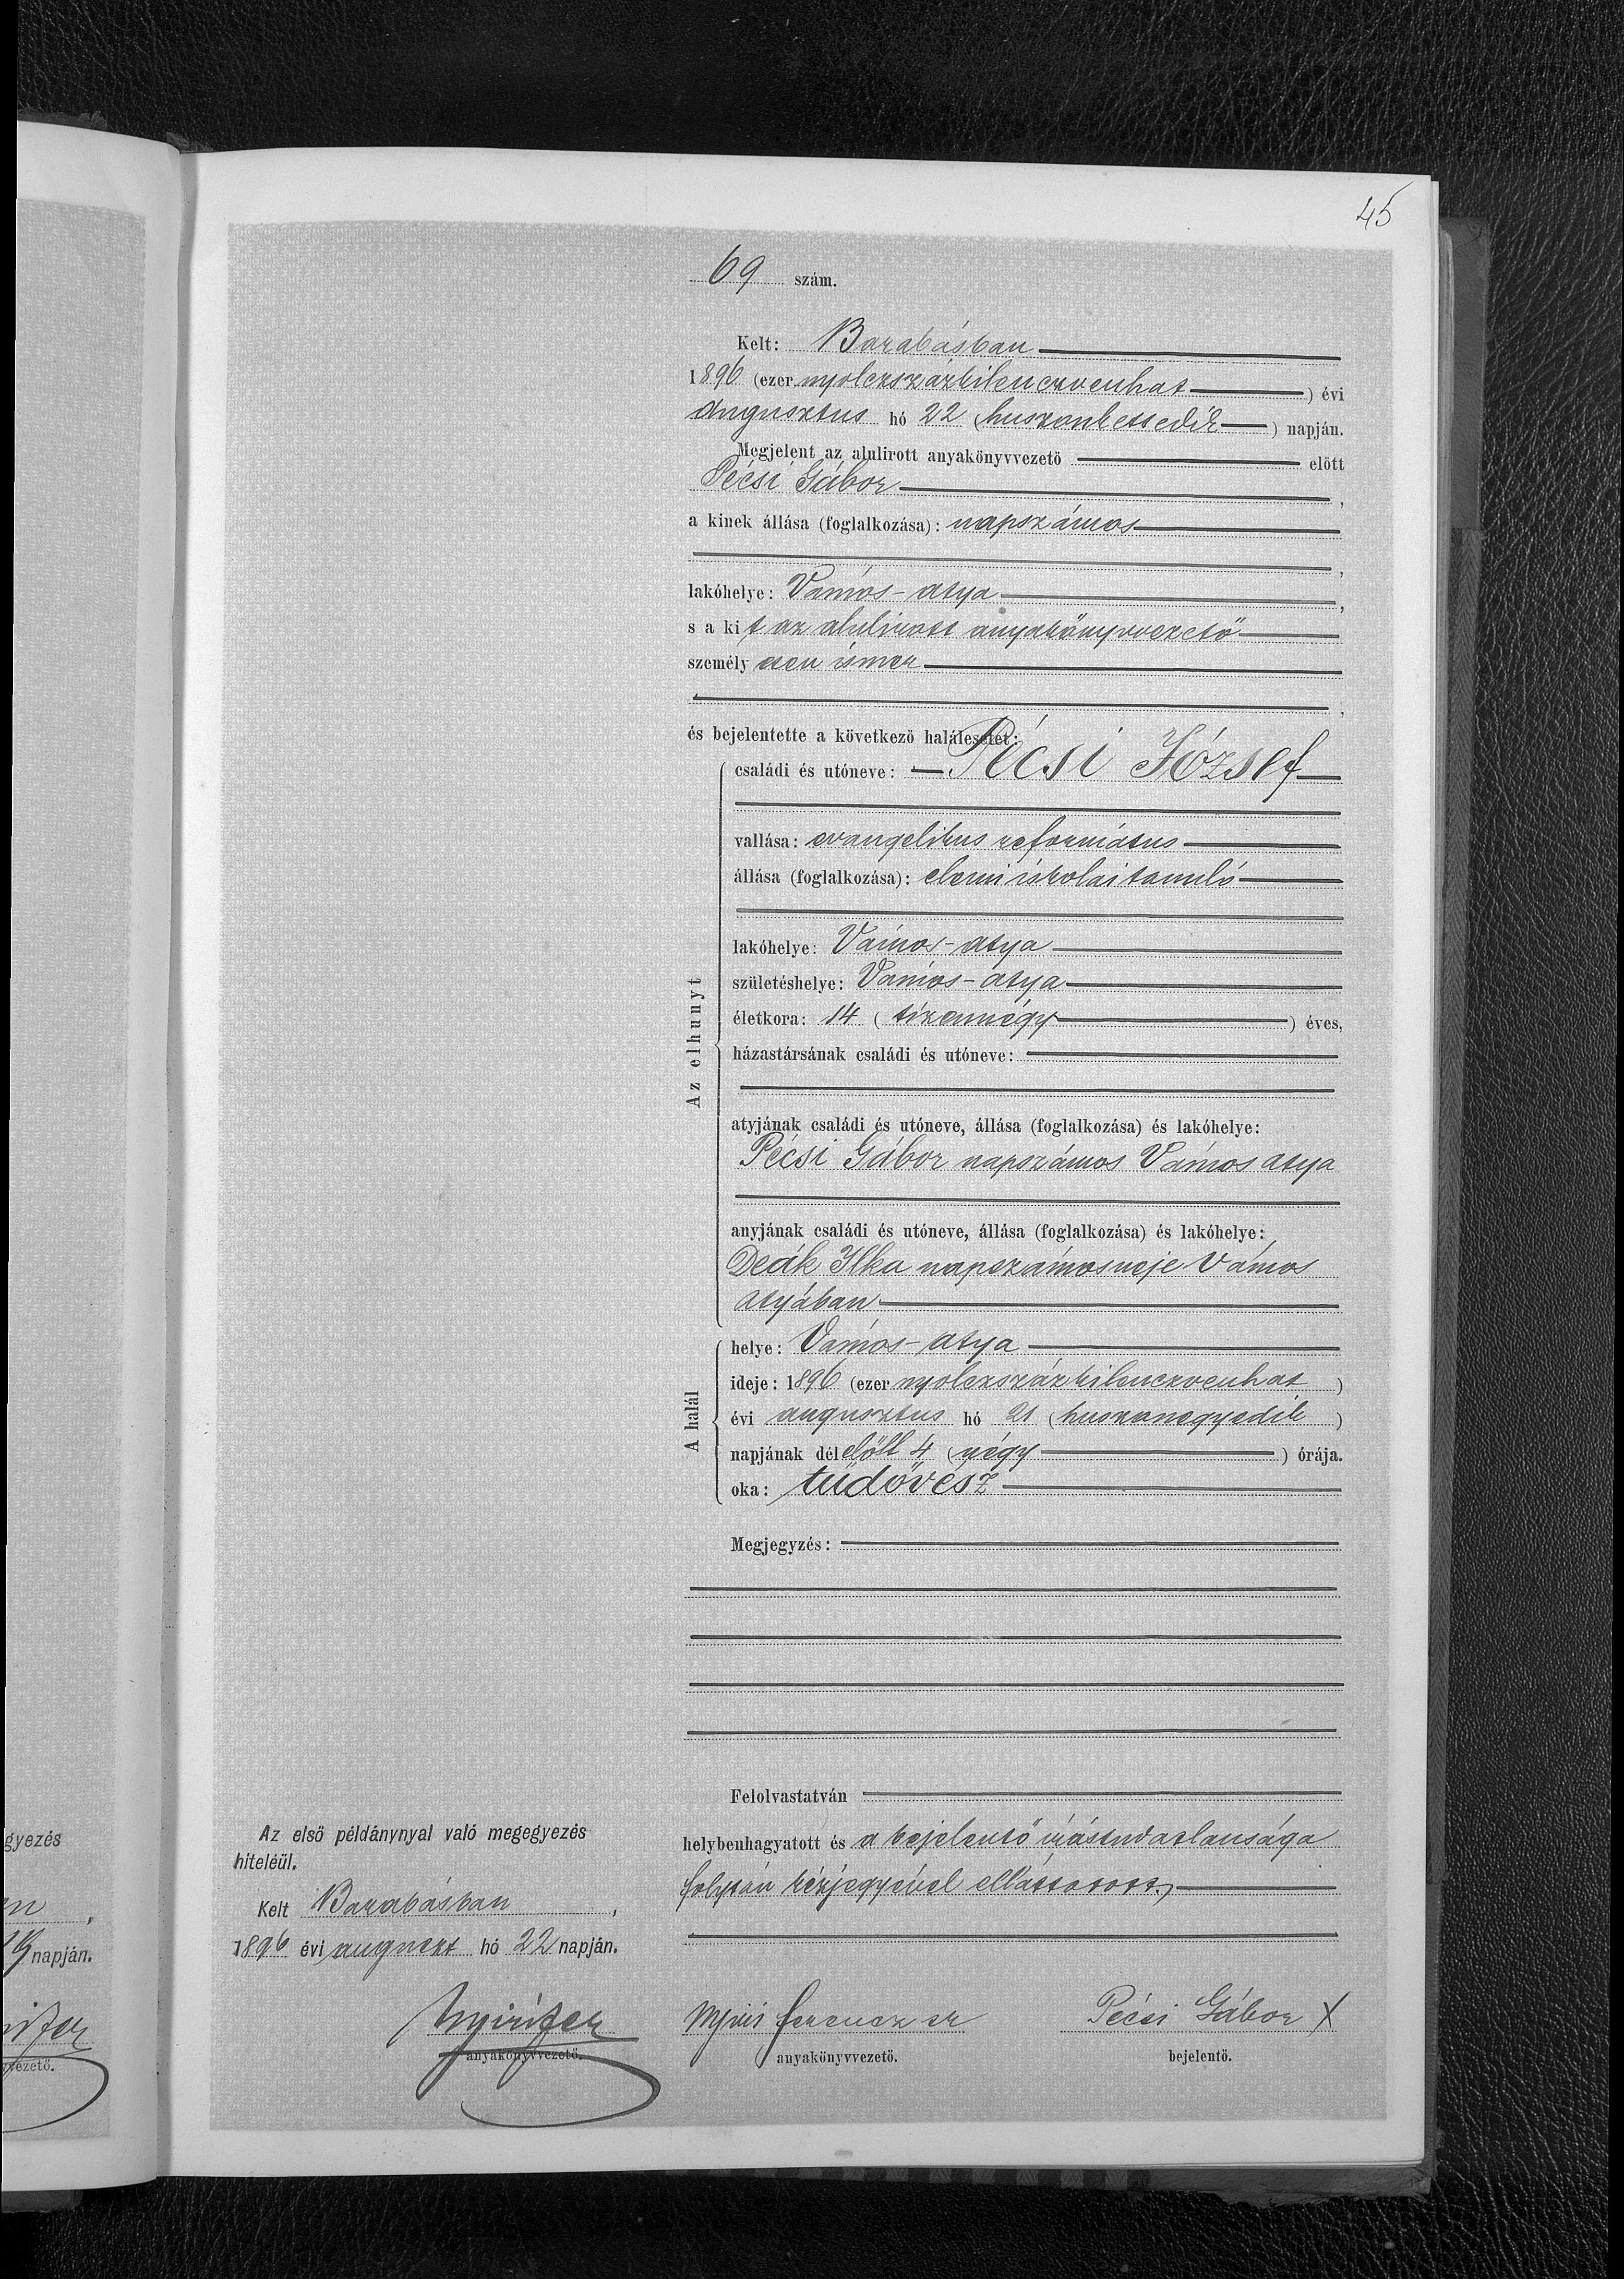 45
69 szám.
Kelt: Barabásban
1896 (ezer nyolczszázkilenczvenhat) évi
augusztus hó 22 (huszonkettedik) napján.
Megjelent az alulirott anyakönyvvezető előtt
Pécsi Gábor,
a kinek állása (foglalkozása): napszámos
,
lakóhelye: Vámos-atya,
s a kit az alulirott anyakönyvvezető
személyesen ismer
,
és bejelentette a következő halálesetet:
Az elhunyt
családi és utóneve: Pécsi József
vallása: evangelikus református
állása (foglalkozása): elemi iskolai tanuló
lakóhelye: Vámos-atya
születéshelye: Vámos-atya
életkora: 14 (tizennégy) éves,
házastársának családi és utóneve:
atyjának családi és utóneve, állása (foglalkozása) és lakóhelye:
Pécsi Gábor napszámos Vámos atya
anyjának családi és utóneve, állása (foglalkozása) és lakóhelye:
Deák Ilka napszámosneje Vámos
atyában
A halál
helye: Vámos-atya
ideje: 1896 (ezer nyolczszázkilenczvenhat)
évi augusztus hó 21 (huszonegyedik)
napjának délelőtt 4 (négy) órája.
oka: tüdővész
Megjegyzés:
Felolvastatván
helybenhagyatott és a bejelentő irástudatlansága
folytán kézjegyével elláttatott.
Az első példánynyal való megegyezés
hiteléül.
Kelt Barabásban,
1896 évi auguszt hó 22 napján.
anyakönyvvezető.
Nyiri Ferencz
anyakönyvvezető.
Pécsi Gábor X
bejelentő.
gyezés
napján.
vezető.